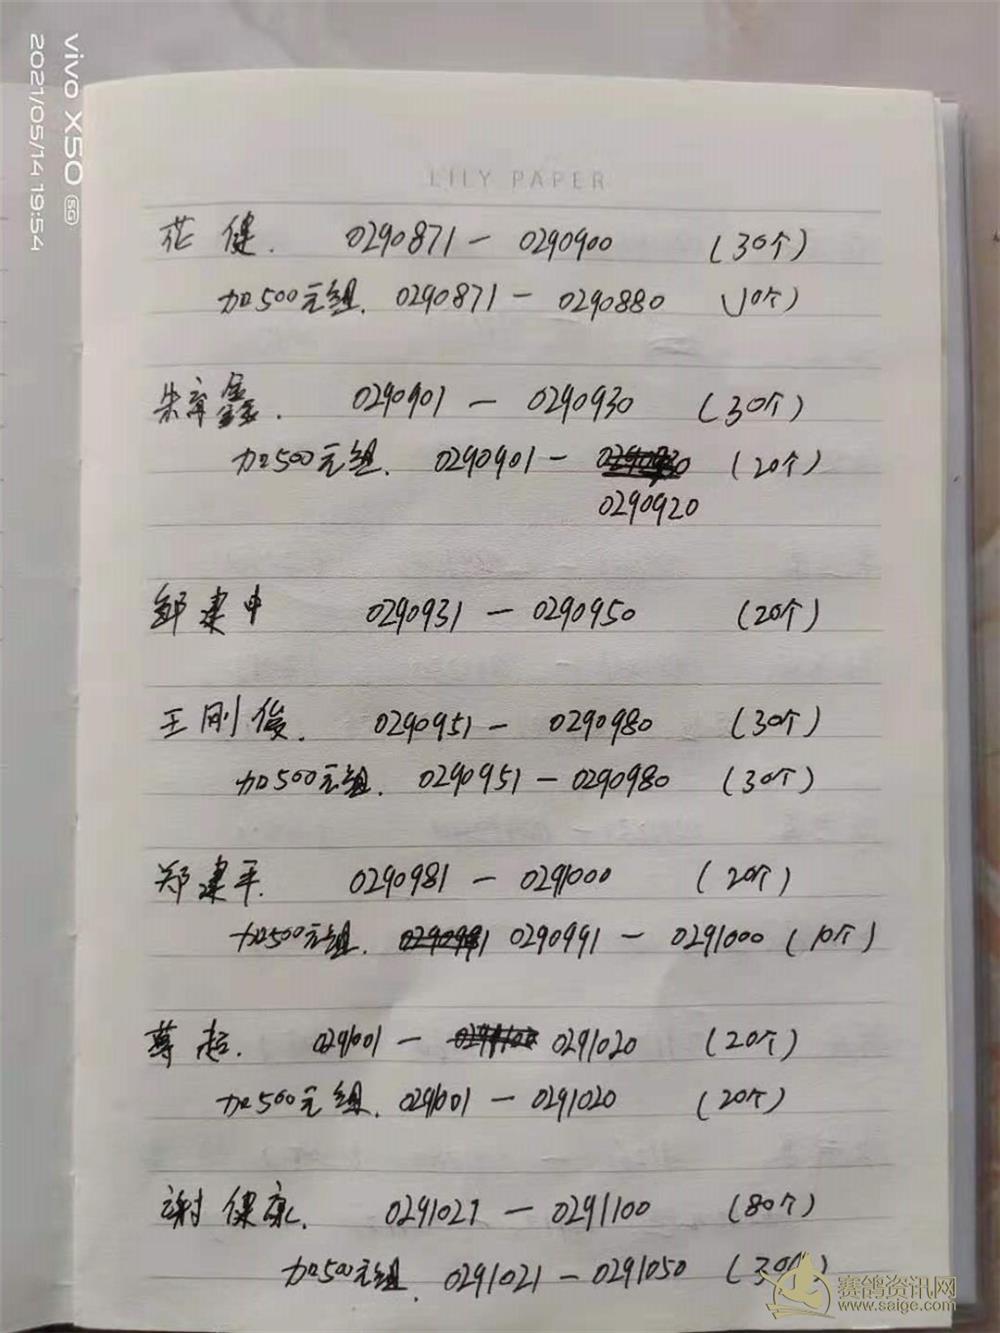 vivo X50 5G
2021/05/14 19:54
LILY PAPER
花健. 0290871 — 0290900 (30个)
加500元组. 0290871 — 0290880 (10个)
朱育鑫. 0290901 — 0290930 (30个)
加500元组. 0290901 — (20个)
0290920
邹建中 0290931 — 0290950 (20个)
王刚俊. 0290951 — 0290980 (30个)
加500元组. 0290951 — 0290980 (30个)
郑建平. 0290981 — 0291000 (20个)
加500元组. 0290991 — 0291000 (10个)
超. 0291001 — 0291020 (20个)
加500元组. 0291001 — 0291020 (20个)
谢健康. 0291021 — 0291100 (80个)
加500元组. 0291021 — 0291050 (30个)
赛鸽资讯网
www.saige.com